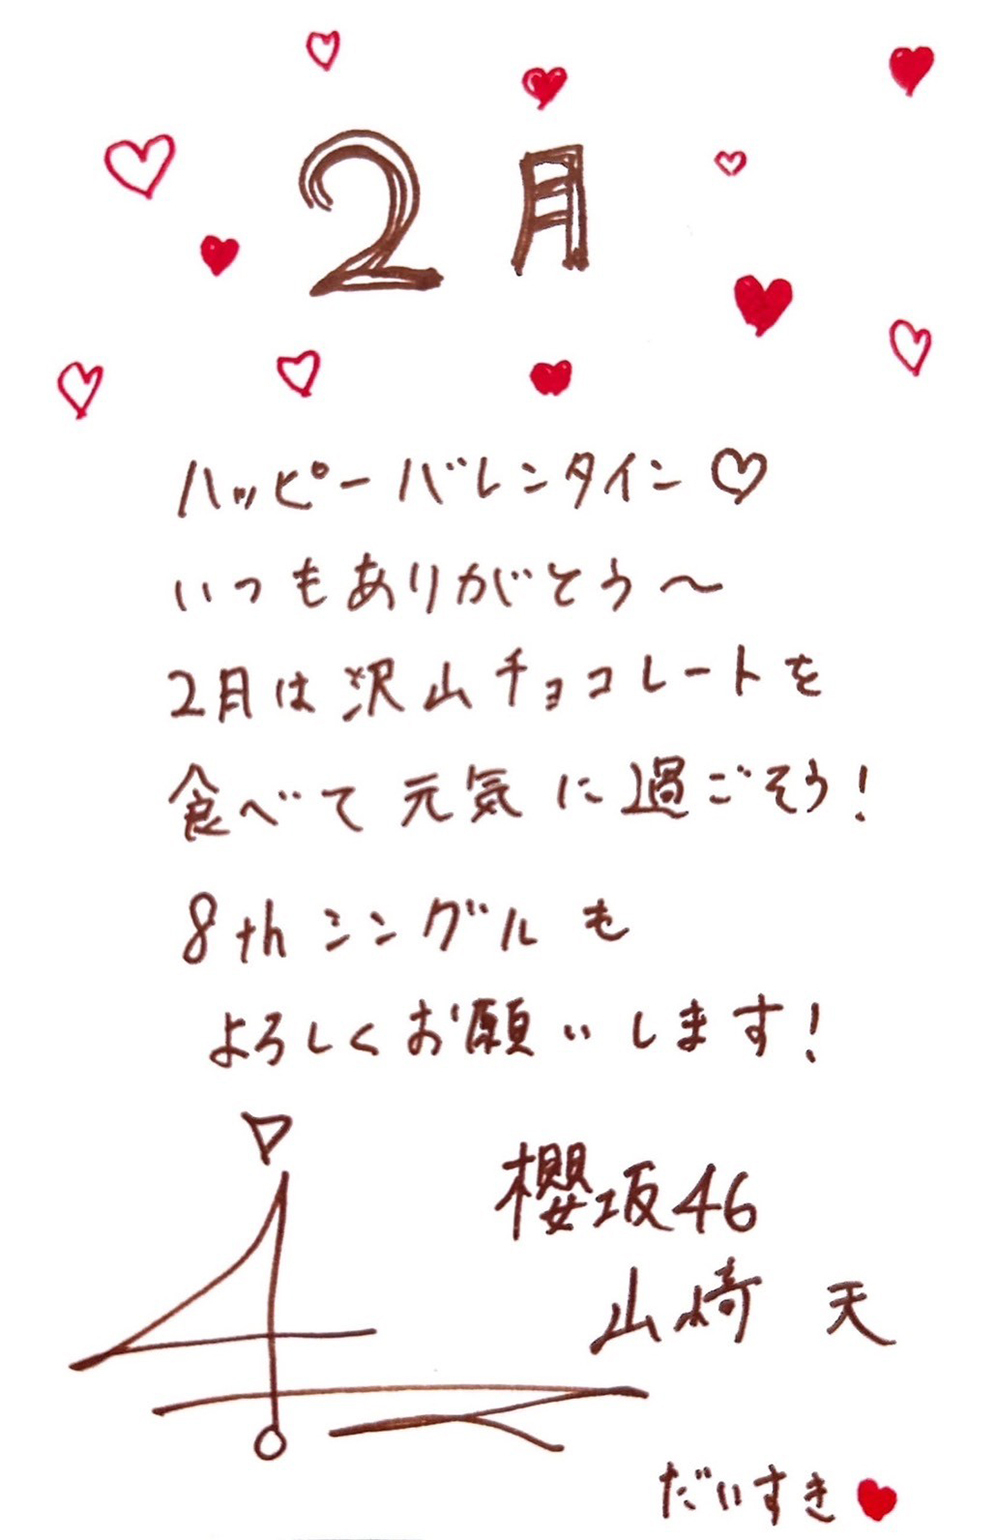 2月
ハッピーバレンタイン♡
いつもありがとう〜
2月は沢山チョコレートを
食べて元気に過ごそう!
8thシングルも
よろしくお願いします!
櫻坂46
山﨑 天
だいすき♥